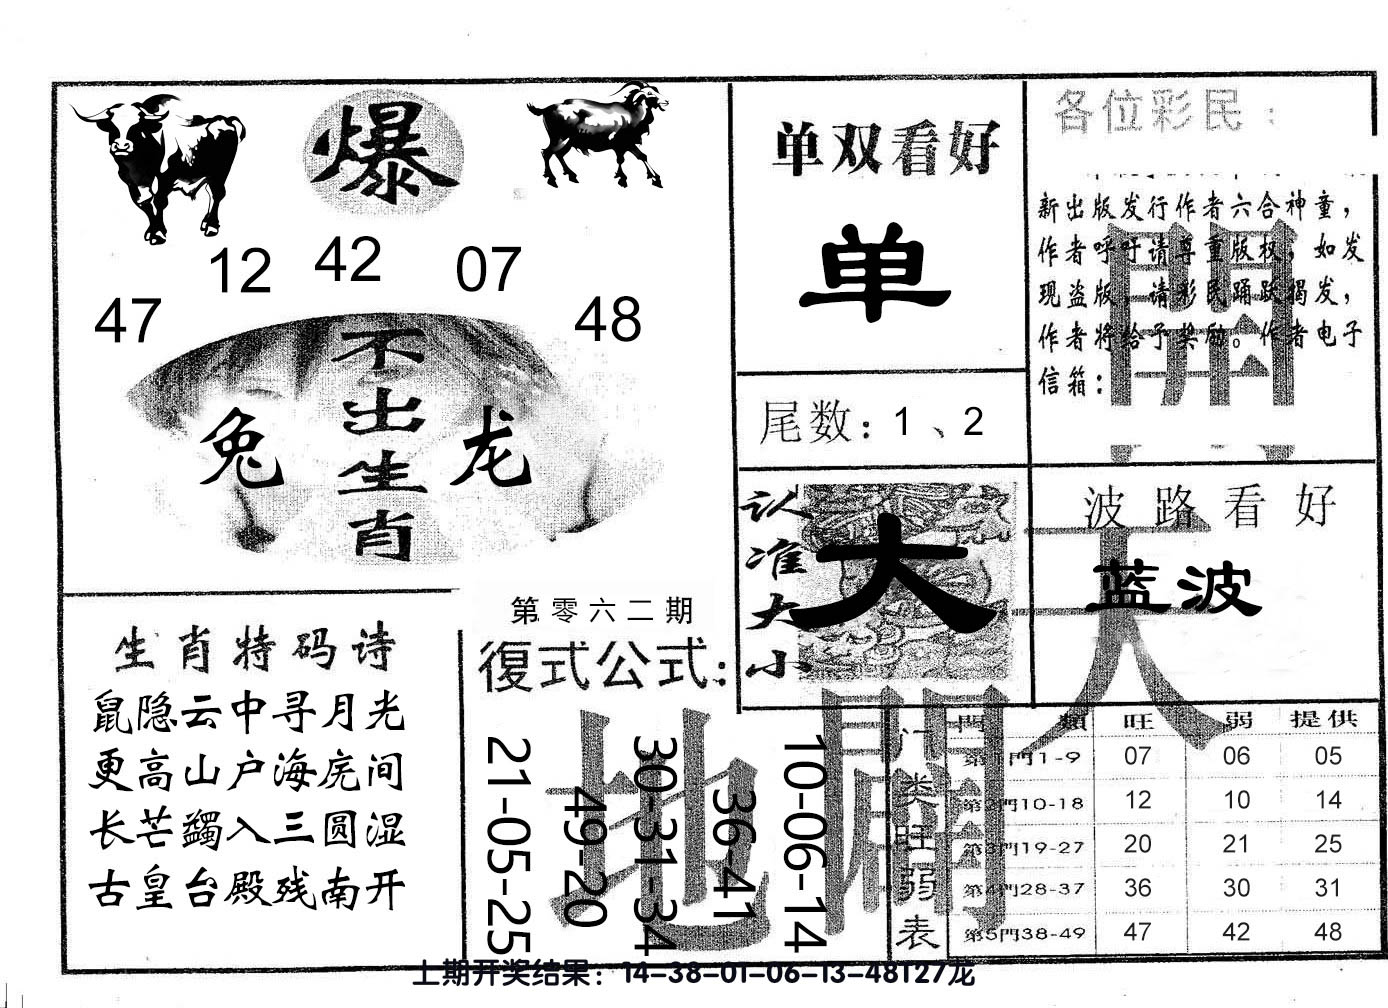 爆
12 42 07
47 48
不出生肖
兔 龙
单双看好
单
尾数：1、2
各位彩民：
新出版发行作者六合神童，
作者呼吁请尊重版权，如发
现盗版，请彩民踊跃揭发，
作者将给予奖励。作者电子
信箱：
開
认准大小
大
波路看好
蓝波
天
生肖特码诗
鼠隐云中寻月光
更高山户海虎间
长芒蠲入三圆湿
古皇台殿残南开
第零六二期
復式公式：
21-05-25
49-20
30-31-34
36-41
10-06-14
地
開
门类旺弱表
門類 旺 弱 提供
第1門1-9 07 06 05
第2門10-18 12 10 14
第3門19-27 20 21 25
第4門28-37 36 30 31
第5門38-49 47 42 48
上期开奖结果：14-38-01-06-13-48T27龙